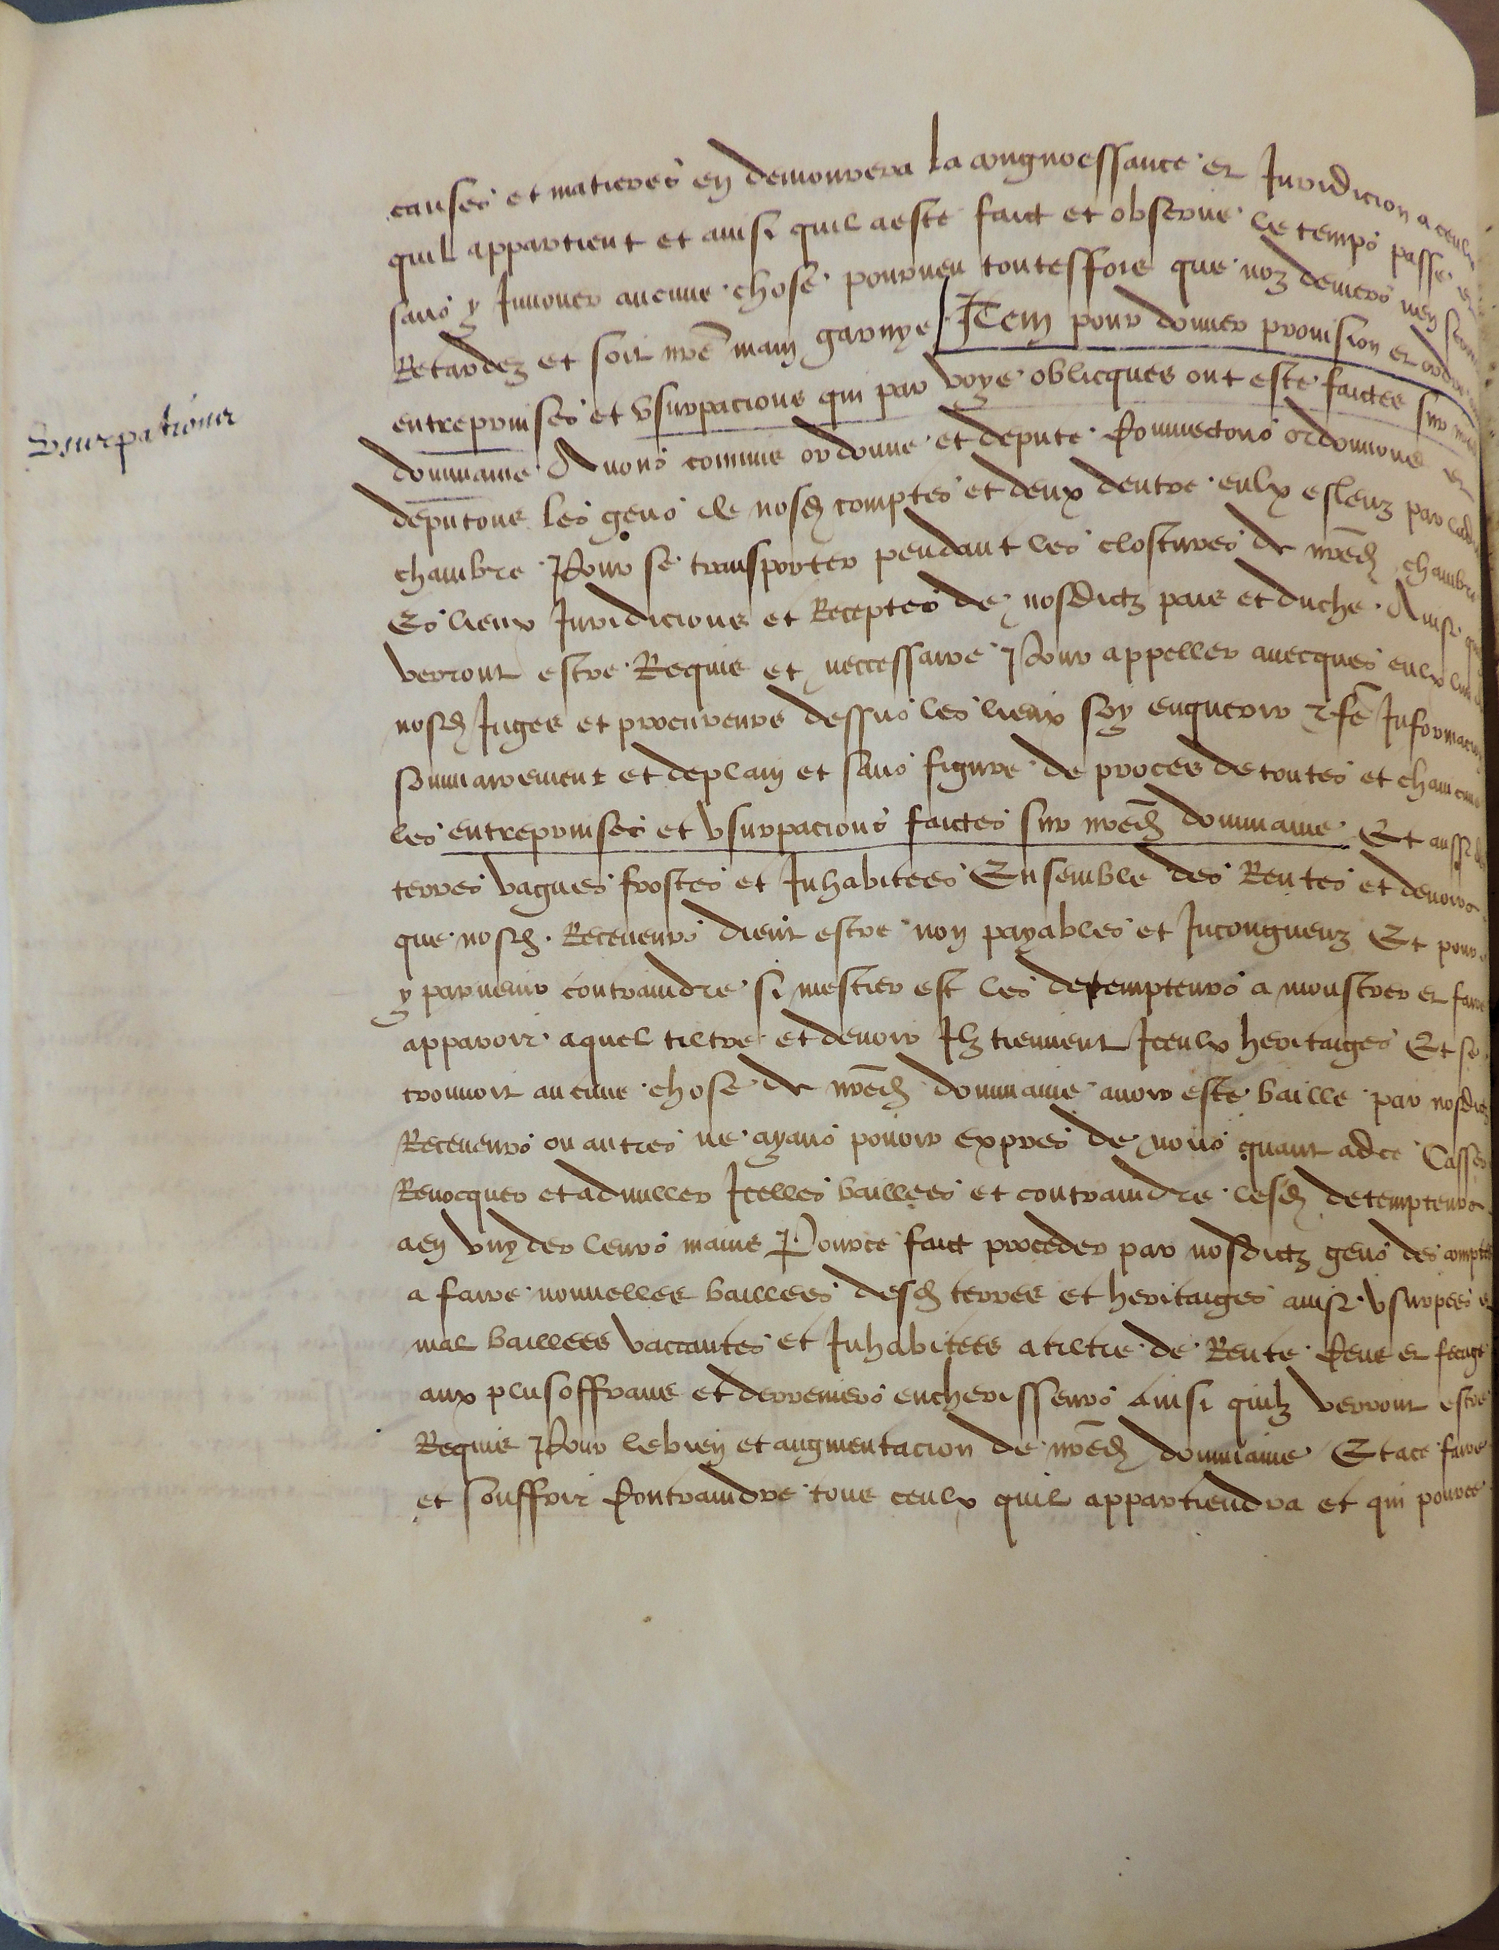 causes et matieres en demourera la congnoessance et Juridicion a ceulx
quil appartient et ainsi quil aeste faict et observe le temps passe et
sans y Innover aucune chose pourveu toutesffois que noz deniers nen seront
Retardez et soit nrē main garnye Item pour donner provision et ordre
entreprinses et usurpacions qui par voye oblicques ont este faictes sur
Usurpations
dommaine Avons comme ordonne et depute Commectons ordonnons et
deputons les gens de nosd comptes et deux dentre eulx esleuz par
chambre Pour se transporter pendant les clostures de nrēd chambre
Es lieux Juridicions et Receptes de nosdictz pais et duche Ainsi
verront estre Requis et neccessaire Pour appeller avecques eulx
nosd Juges et procureurs dessus les lieux soy enquerir et fē Informacion
sommairement et deplain et sans figure de proces de toutes et chascune
les entreprinses et usurpacions faictes sur nrēd dommaine Et aussi
terres vagues frostes et Inhabitees Ensemble des Rentes et devoirs
que nosd Receveurs dient estre non payables et Incongneuz Et pour
y parvenir contraindre si mestier est les detempteurs a monstrer et faire
apparoir aquel tiltre et devoir Ilz tiennent Iceulx heritaiges Et se
trouvoit aucune chose de nrēd dommaine avoir este baille par nosdictz
Receveurs ou autres ne ayans povoir expres de nous quant adce Casser
Revocquer et adnuller Icelles baillees et contraindre lesd detempteurs
aen vuyder leurs mains Pource faict proceder par nosdictz gens des comptes
a faire nouvelles baillees desd terres et heritaiges ainsi usurpees et
mal baillees vaccantes et Inhabitees atiltre de Rente Cens et feaige
aux plusoffrans et derreniers encherisseurs Ainsi quilz verront estre
Requis Pour lebien et augmentacion de nrēd dommaine Et ace faire
et souffrir Contraindre tous ceulx quil appartiendra et qui pource